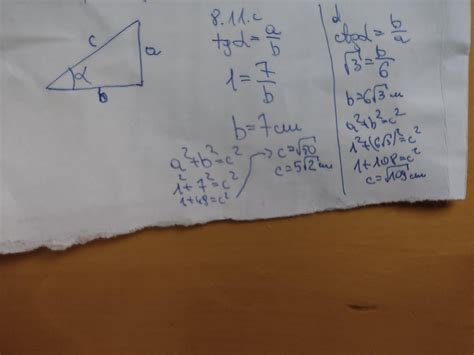 c
a
α
b
8.11.c
tgα = a/b
1 = 7/b
b = 7 cm
a²+b²=c²
1²+7²=c²
1+49=c²
c=√50
c=5√2 cm
d
ctgα = b/a
√3 = b/6
b=6√3 cm
a²+b²=c²
1²+(6√3)²=c²
1+108=c²
c=√109 cm